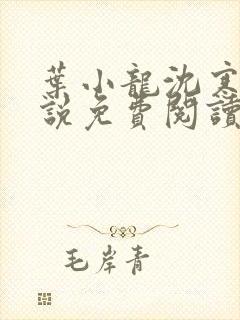 葉小龍沈寒
說免費閱讀
毛岸青